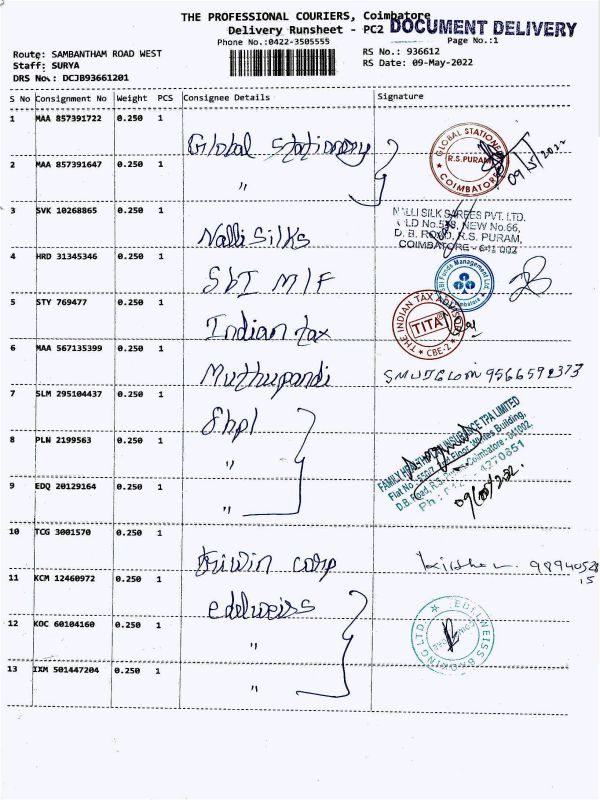 THE PROFESSIONAL COURIERS, Coimbatore
Delivery Runsheet - PC2 DOCUMENT DELIVERY
Phone No.:0422-3505555 Page No.:1
Route: SAMBANTHAM ROAD WEST RS No.: 936612
Staff: SURYA RS Date: 09-May-2022
DRS No.: DCJB93661201
S No Consignment No Weight PCS Consignee Details Signature
1 MAA 857391722 0.250 1 Global Stationery
GLOBAL STATIONERY R.S.PURAM COIMBATORE
2 MAA 857391647 0.250 1 "
3 SVK 10268865 0.250 1 Nalli Silks
NALLI SILK SAREES PVT. LTD.
OLD No.538, NEW No.66,
D. B. ROAD, R.S. PURAM,
COIMBATORE - 641 002
4 HRD 31345346 0.250 1 SbI M/F
SBI Funds Management Ltd. Coimbatore
5 STY 769477 0.250 1 Indian tax
THE INDIAN TAX ADVISORS TITA CBE-2
6 MAA 567135399 0.250 1 Muthupandi 9566592373
7 SLM 295104437 0.250 1 fhpl
FAMILY HEALTH PLAN INSURANCE TPA LIMITED
8 PLN 2199563 0.250 1 "
9 EDQ 20129164 0.250 1 "
10 TCG 3001570 0.250 1 triwin corp
11 KCM 12460972 0.250 1 edelweiss
EDELWEISS BROKING LTD.
12 KOC 60104160 0.250 1 "
13 IXM 501447204 0.250 1 "